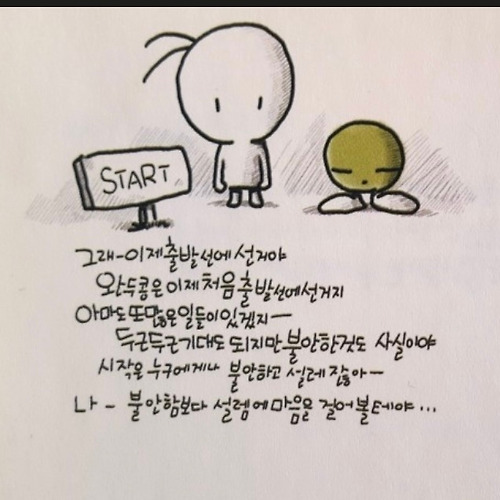 START
그래-이제출발선에 선거야
완두콩은 이제 처음 출발선에선거지
아마도 또 많은 일들이 있겠지-
두근두근 기대도 되지만 불안한것도 사실이야
시작은 누구에게나 불안하고 설레잖아-
나- 불안함보다 설렘에 마음을 걸어볼테야...